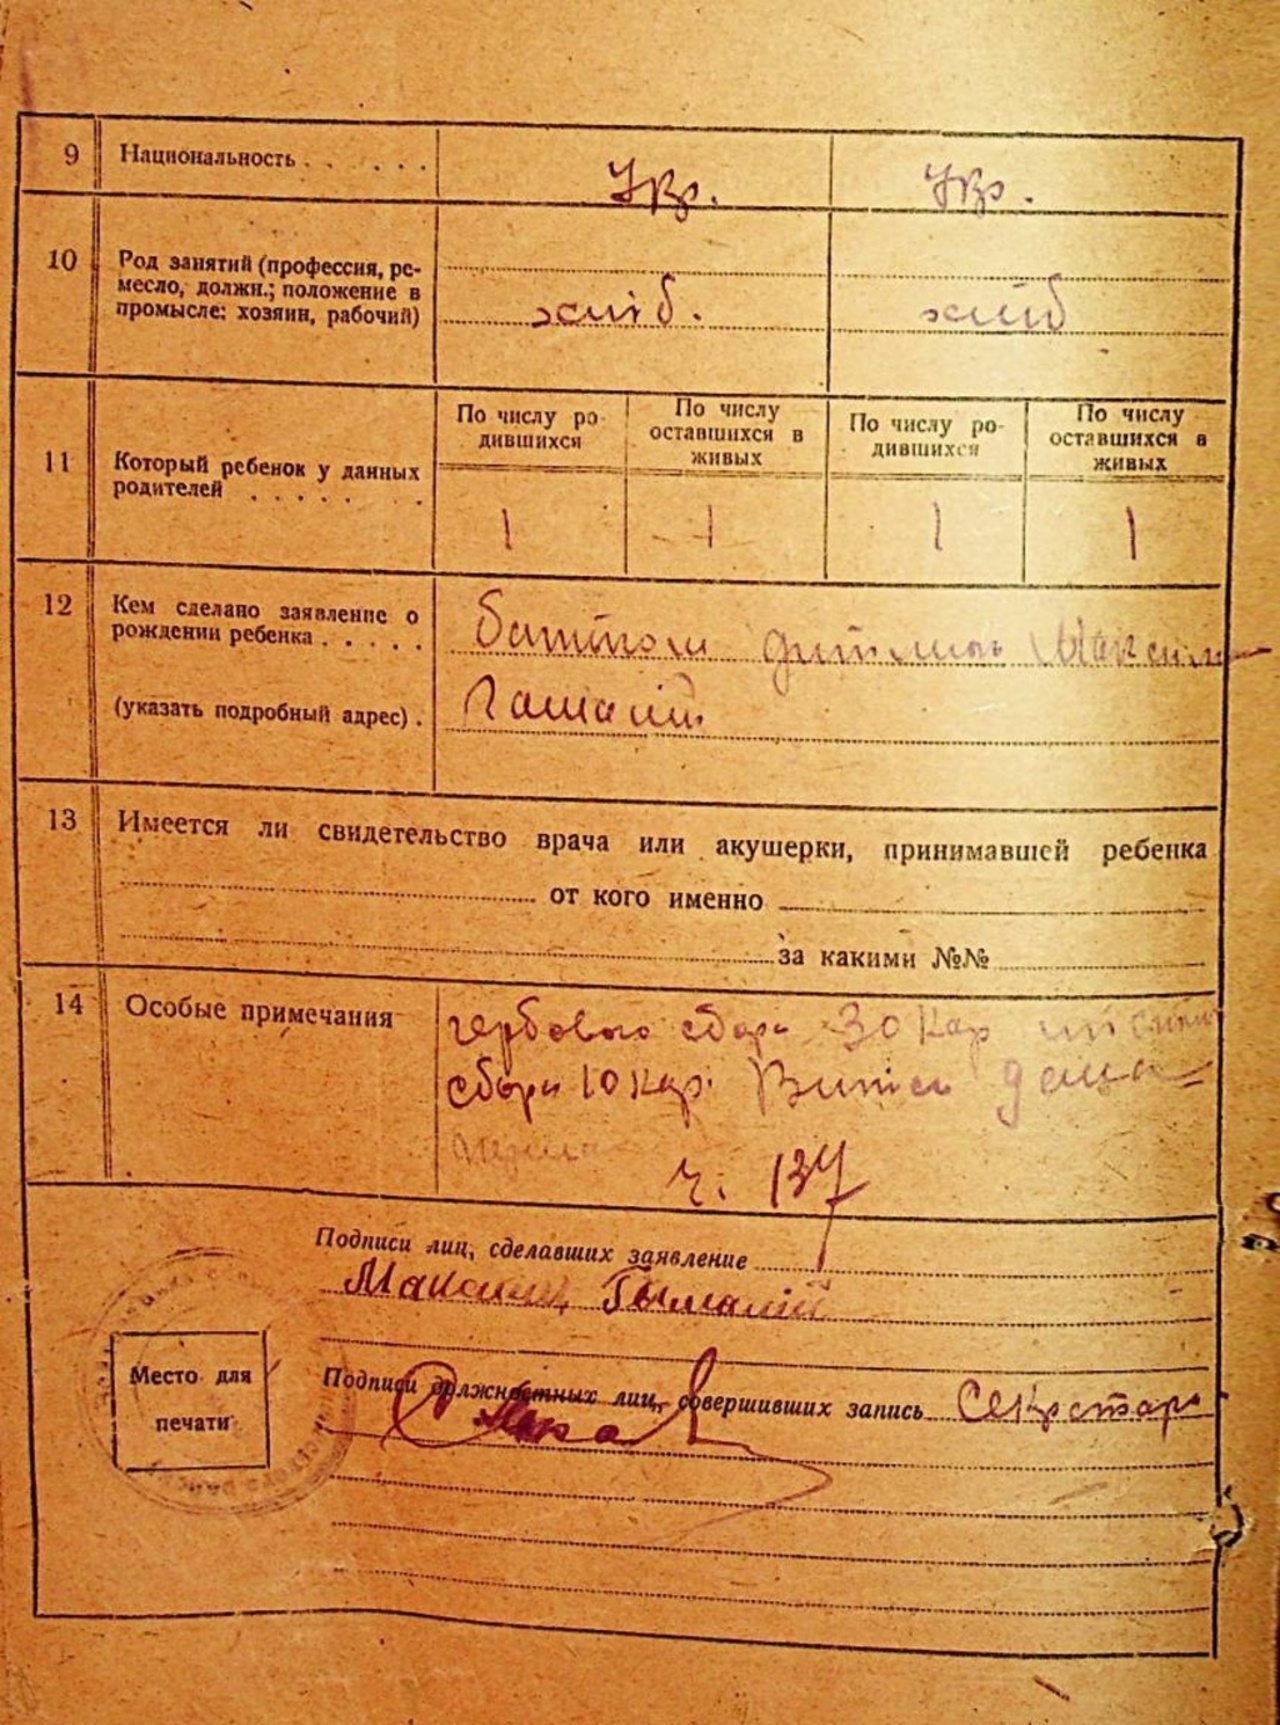 9 Национальность . . . . . . Укр. Укр.
10 Род занятий (профессия, ре-
месло, должн.; положение в
промысле: хозяин, рабочий) хліб. хліб
11 Который ребенок у данных
родителей . . . . . .
По числу ро-
дившихся
По числу
оставшихся в
живых
По числу ро-
дившихся
По числу
оставшихся в
живых
1 1 1 1
12 Кем сделано заявление о
рождении ребенка . . . . .
(указать подробный адрес) .
батьком дитини Максим
13 Имеется ли свидетельство врача или акушерки, принимавшей ребенка
от кого именно
за какими №№
14 Особые примечания
гербового сбору 30 кар
сбору 10 кар.
ч. 137
Подписи лиц, сделавших заявление
Максим
Место для
печати
Подписи должностных лиц, совершивших запись Секретар